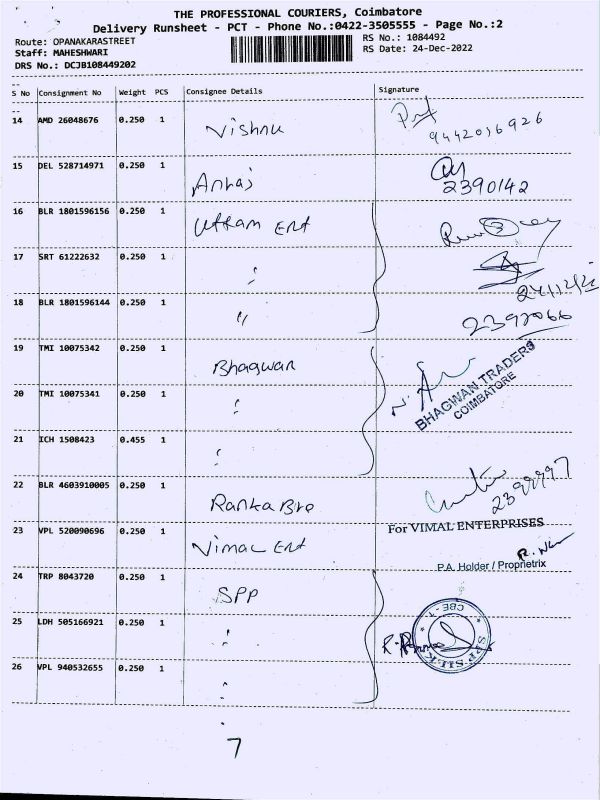 THE PROFESSIONAL COURIERS, Coimbatore
Delivery Runsheet - PCT - Phone No.:0422-3505555 - Page No.:2
Route: OPANAKARASTREET
RS No.: 1084492
Staff: MAHESHWARI
RS Date: 24-Dec-2022
DRS No.: DCJB108449202
S No Consignment No Weight PCS Consignee Details Signature
14 AMD 26048676 0.250 1 Vishnu
9442036926
15 DEL 528714971 0.250 1
2390142
16 BLR 1801596156 0.250 1 Uttam Ent
17 SRT 61222632 0.250 1 "
18 BLR 1801596144 0.250 1 "
2392066
19 TMI 10075342 0.250 1 Bhagwan
BHAGWAN TRADERS
COIMBATORE
20 TMI 10075341 0.250 1 "
21 ICH 1508423 0.455 1 "
22 BLR 4603910005 0.250 1 Ranka Bro
23 VPL 520090696 0.250 1 Vimal Ent
For VIMAL ENTERPRISES
P.A. Holder / Proprietrix
24 TRP 8043720 0.250 1 SPP
25 LDH 505166921 0.250 1 "
26 VPL 940532655 0.250 1 "
7